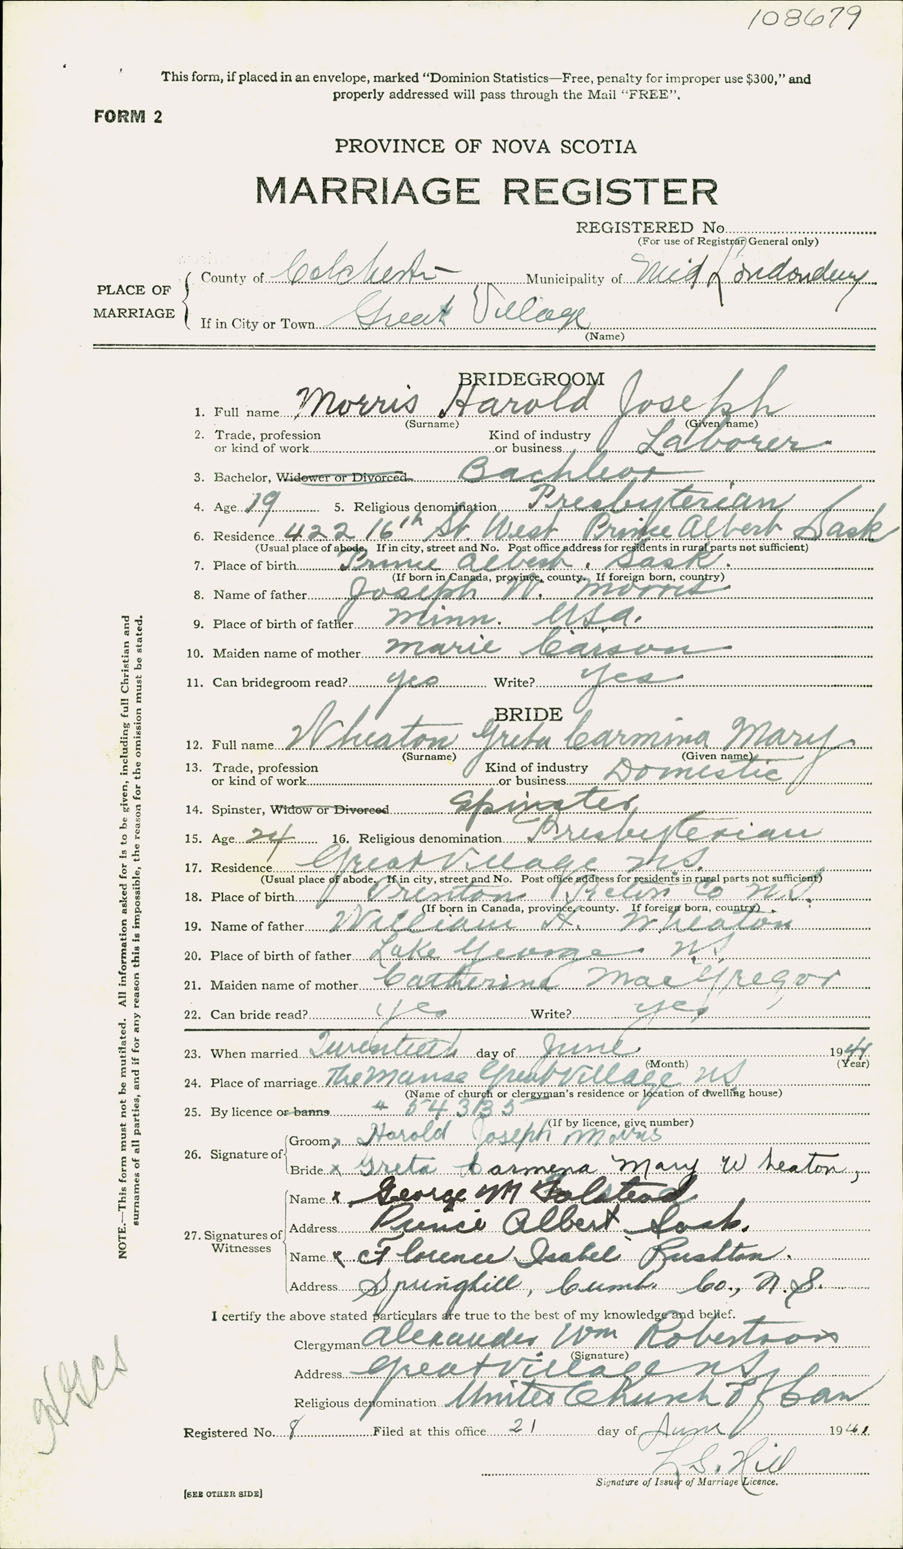 108679
This form, if placed in an envelope, marked "Dominion Statistics—Free, penalty for improper use $300," and
properly addressed will pass through the Mail "FREE".
FORM 2
PROVINCE OF NOVA SCOTIA
MARRIAGE REGISTER
REGISTERED No.
(For use of Registrar General only)
PLACE OF MARRIAGE
County of Colchester Municipality of Mid Londonderry
If in City or Town Great Village
(Name)
BRIDEGROOM
1. Full name Morris Harold Joseph
(Surname) (Given name)
2. Trade, profession or kind of work Kind of industry or business Laborer
3. Bachelor, Widower or Divorced Bachleor
4. Age 19 5. Religious denomination Presbyterian
6. Residence 422 16th St. West Prince Albert Sask
(Usual place of abode. If in city, street and No. Post office address for residents in rural parts not sufficient)
7. Place of birth Prince Albert, Sask.
(If born in Canada, province, county. If foreign born, country)
8. Name of father Joseph W. Morris
9. Place of birth of father Minn. USA.
10. Maiden name of mother Marie Carson
11. Can bridegroom read? yes Write? Yes
BRIDE
12. Full name Wheaton Greta Carmina Mary
(Surname) (Given name)
13. Trade, profession or kind of work Kind of industry or business Domestic
14. Spinster, Widow or Divorced Spinster
15. Age 24 16. Religious denomination Presbyterian
17. Residence Great Village NS.
(Usual place of abode. If in city, street and No. Post office address for residents in rural parts not sufficient)
18. Place of birth Trenton Pictou Co N.S.
(If born in Canada, province, county. If foreign born, country)
19. Name of father William H. Wheaton
20. Place of birth of father Lake George NS
21. Maiden name of mother Catherine MacGregor
22. Can bride read? yes Write? yes
23. When married Twentieth day of June 1941
(Month) (Year)
24. Place of marriage The Manse Great Village NS
(Name of church or clergyman's residence or location of dwelling house)
25. By licence or banns
(If by licence, give number)
26. Signature of
Groom x Harold Joseph Morris
Bride x Greta Carmena Mary Wheaton,
27. Signatures of Witnesses
Name x George M Folstead
Address Prince Albert Sask.
Name x Florence Isabel Rushton.
Address Springhill, Cumb. Co., N.S.
I certify the above stated particulars are true to the best of my knowledge and belief.
Clergyman Alexander Wm Robertson
(Signature)
Address Great Village NS
Religious denomination United Church of Can
Registered No. 8 Filed at this office 21 day of June 1941
L. S. Hill
Signature of Issuer of Marriage Licence.
[SEE OTHER SIDE]
NOTE.—This form must not be mutilated. All information asked for is to be given, including full Christian and
surnames of all parties, and if for any reason this is impossible, the reason for the omission must be stated.